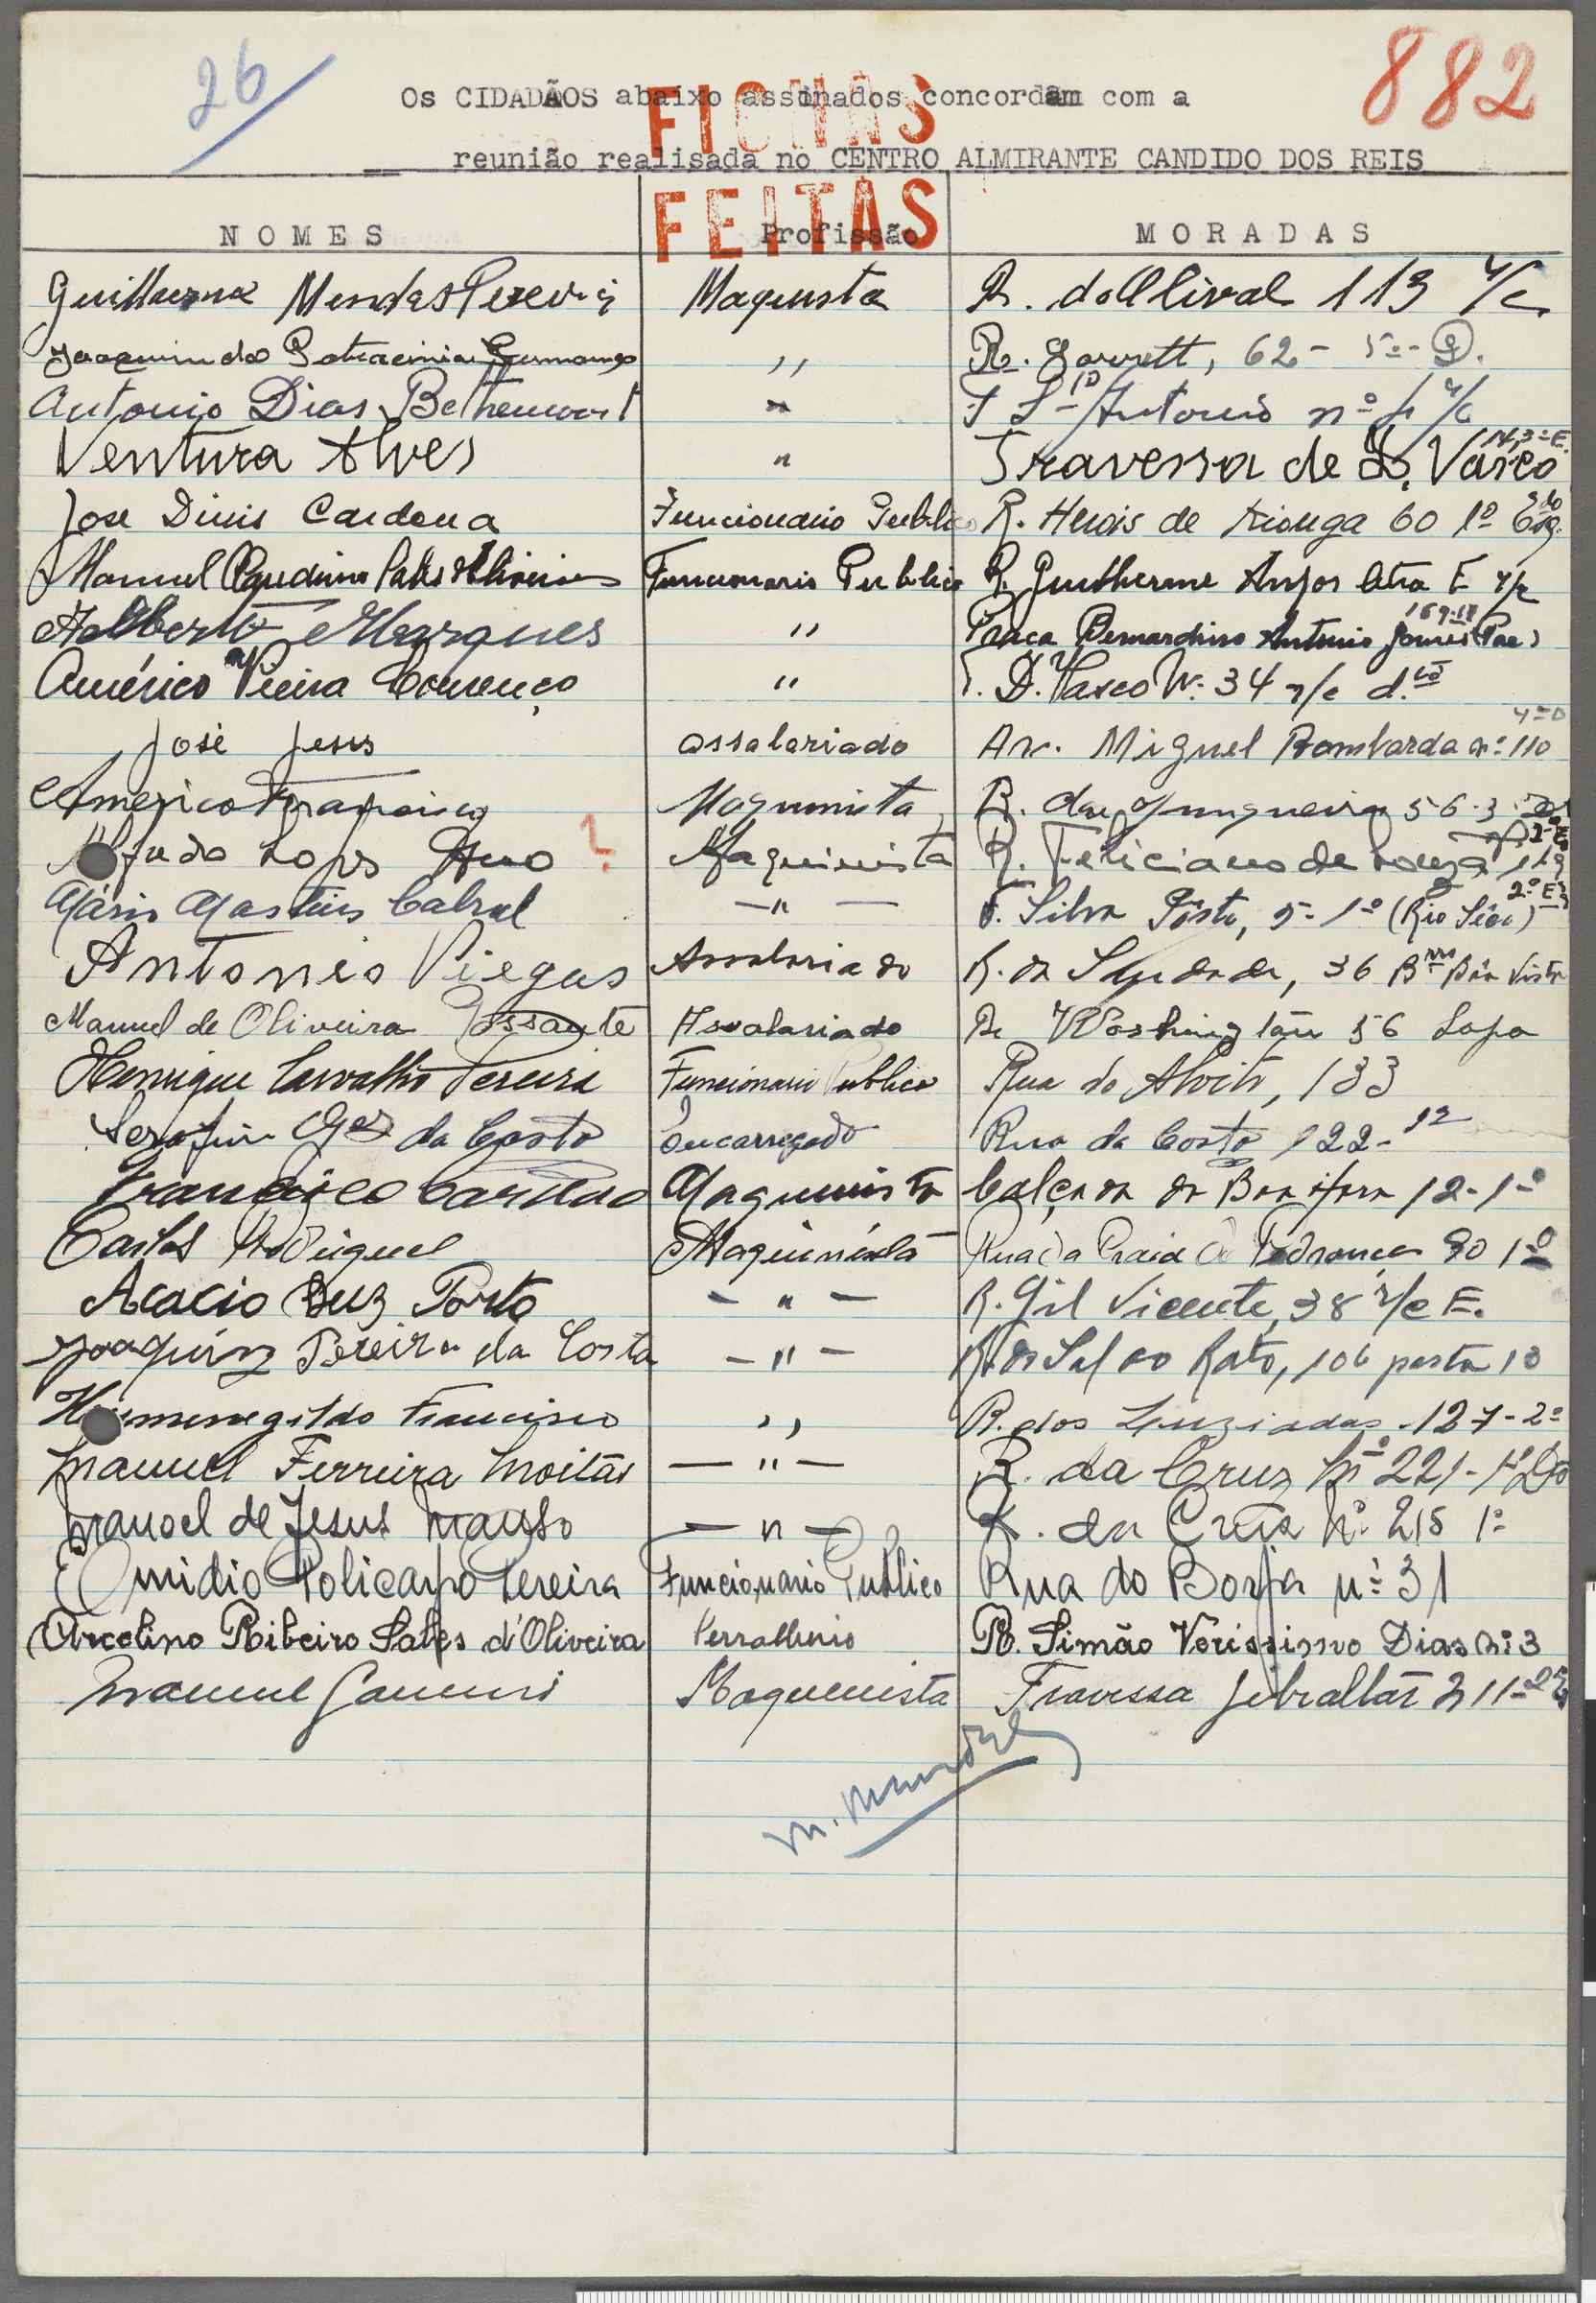 26
882
Os CIDADÃOS abaixo assinados concordam com a
FICHAS
reunião realisada no CENTRO ALMIRANTE CANDIDO DOS REIS
FEITAS
NOMES Profissão MORADAS
Guilherme Mendes Pereira Maquista R. do Olival 113 r/c
Joaquim do Patrocinio Germano ,, R. Garrett, 62- 5º- D.
Antonio Dias Bethencourt " T Stº Antonio nº 4 r/c
Ventura Alves " Travessa de D. Vasco 14, 3º E.
Jose Dinis Cardona Funcionario Publico R. Herois de Kionga 60 1º Esq.
Manuel Funcionario Publico R. Guilherme Anjos letra E r/c
Adelberto Marques " Praca Bernardino Antonio Gomes (Pae) 169-
Américo Vieira Lourenço " T. D. Vasco Nº 34 r/c d.to
José Jesus assalariado Av. Miguel Bombarda nº 110 4º D
Americo Francisco Maqunista R. da Junqueira 56-3
Lopes ? Maquinista R. Feliciano de Souza
Mário Martins Cabral — " — T. Silva Pôrto, 5- 1º (Rio Sêco) 2º E
Antonio Viegas Assalariado R. da Saudade, 36 Brro Bôa Vista
Manuel de Oliveira Possante Assalariado R. Washington 56 Lapa
Henrique Carvalho Pereira Funcionario Publico Rua do Alvito, 133
Serafim da Costa Encarregado Rua da Costa 122-
Francisco Maquinista Calçada da Boa Hora 12-1º
Carlos Rodrigues Maquinista Rua da Praia de Pedrouços 90 1º
Acacio Porto - " - R. Gil Vicente, 38 r/c E.
Joaquim Pereira da Costa - " - R. do Sol ao Rato, 106 porta 10
Hermenegildo Francisco ,, R. dos Luziadas -127-2º
Manuel Ferreira Moitas — " — R. da Cruz Nº 221- 1º Dto
Manoel de Jesus — " — R. da Cruz Nº 215 1º
Omidio Policarpo Pereira Funcionario Publico Rua do Borja nº 31
Arcelino Ribeiro Sales d'Oliveira Serralheiro R. Simão Verissimo Dias nº 3
Manuel Maquenista Travessa Gibraltar